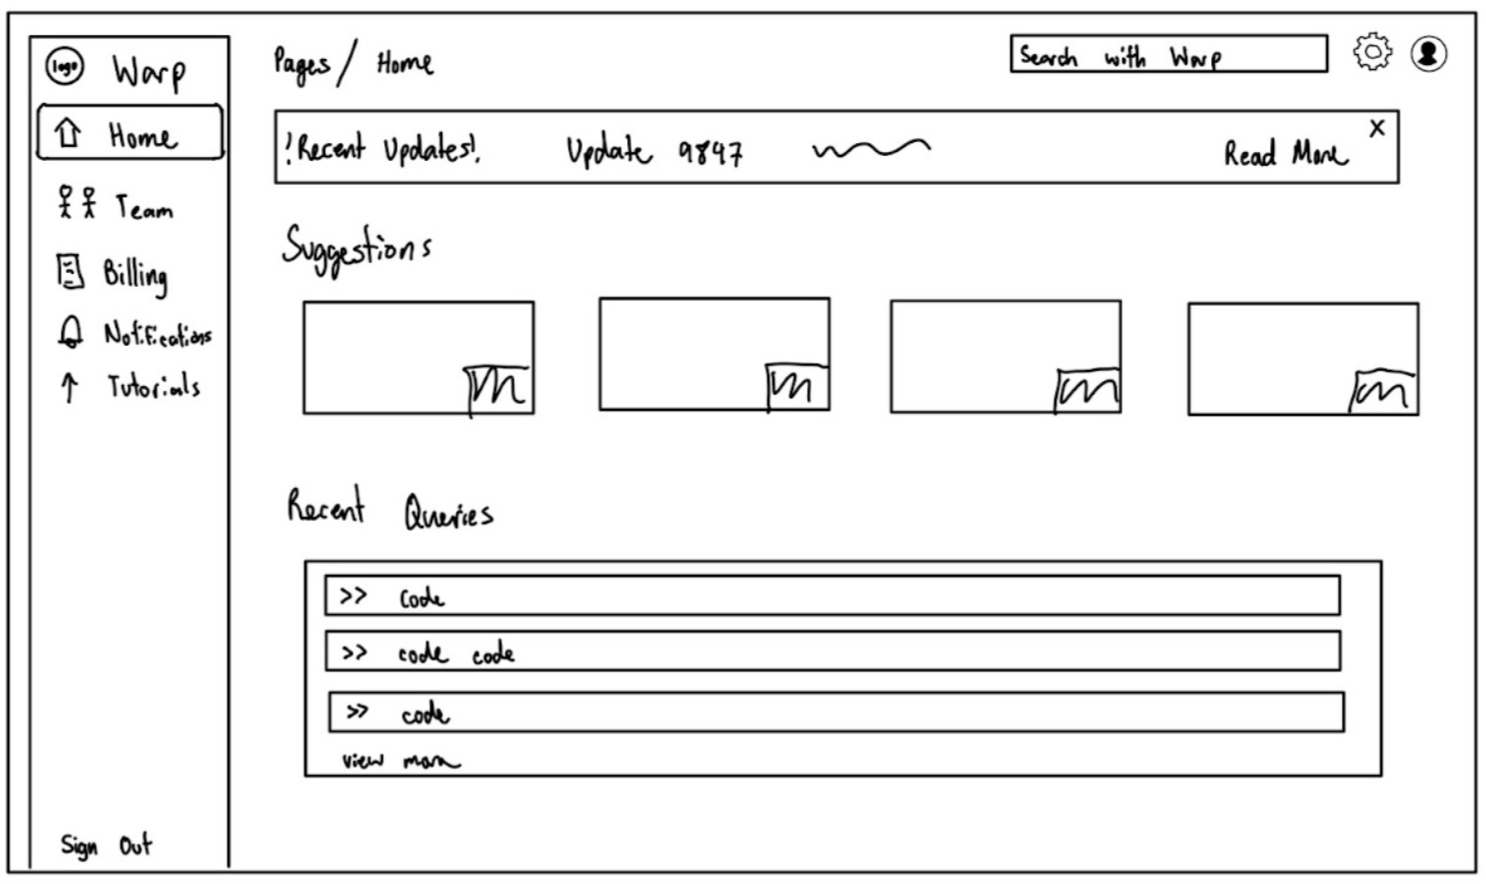 logo Warp
Home
Team
Billing
Notifications
Tutorials
Sign Out
Pages / Home
Search with Warp
!Recent Updates! Update 9847 Read More X
Suggestions
Recent Queries
>> code
>> code code
>> code
view more